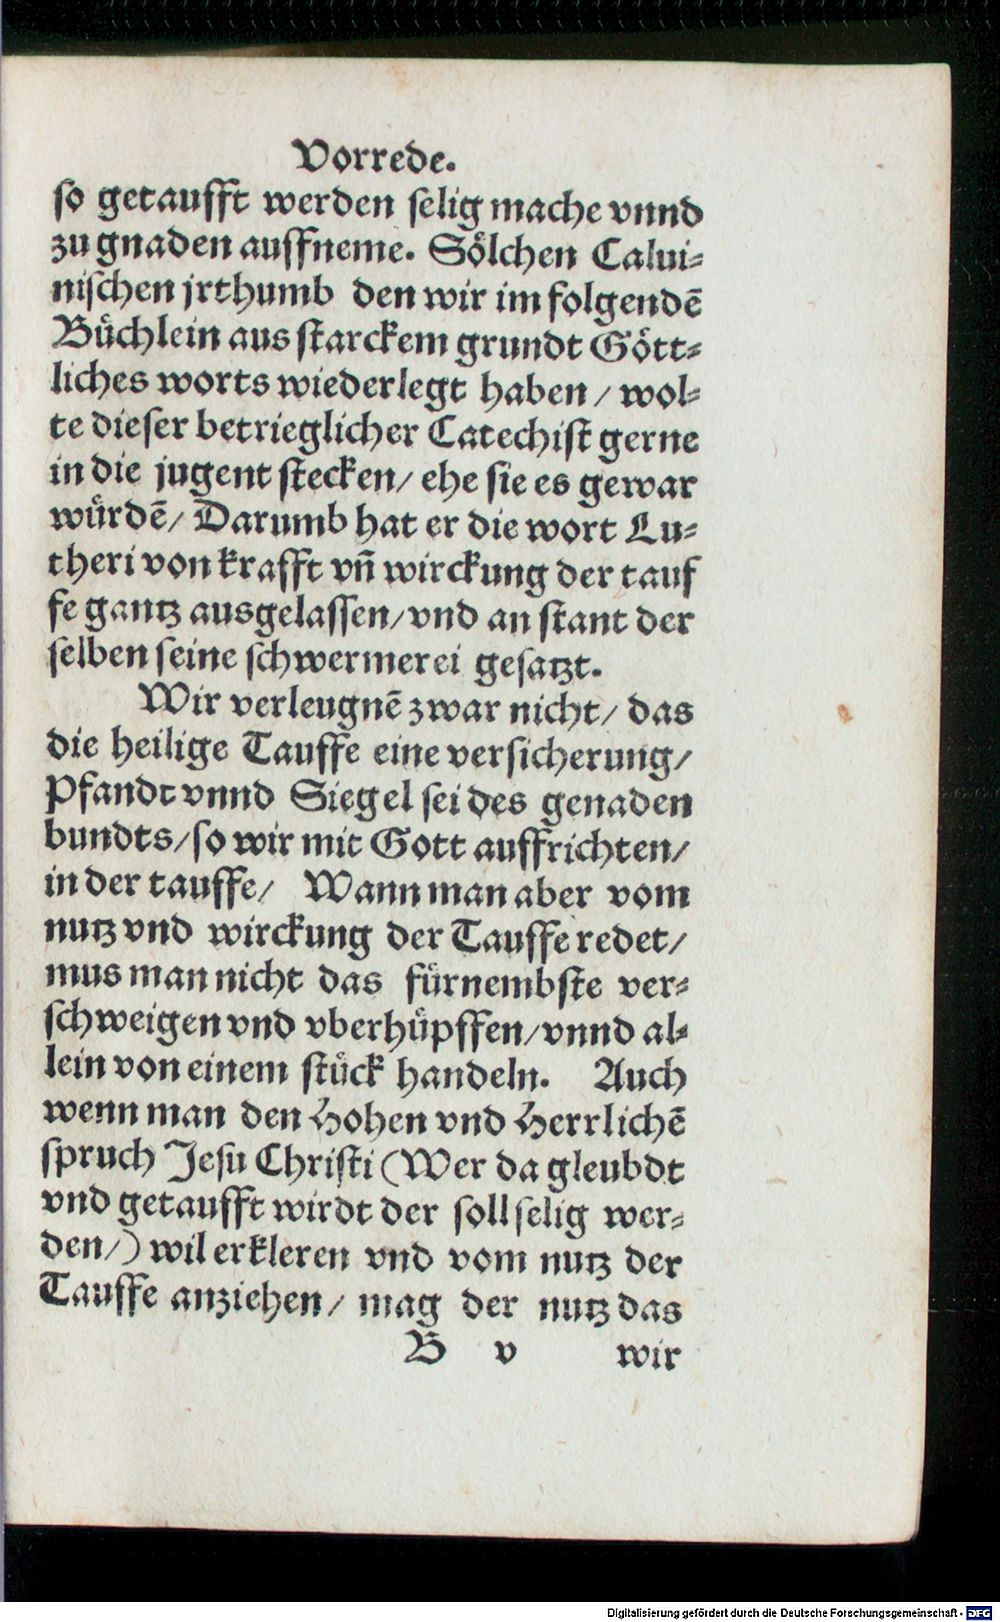 Vorrede.
so getaufft werden selig mache vnnd
zu gnaden auffneme. Soͤlchen Calui⸗
nischen jrthumb den wir im folgendē
Buͤchlein aus starckem grundt Goͤtt⸗
liches worts wiederlegt haben / wol⸗
te dieser betrieglicher Catechist gerne
in die jugent stecken/ ehe sie es gewar
wuͤrdē/ Darumb hat er die wort Lu⸗
theri von krafft vn̄ wirckung der tauf
fe gantz ausgelassen/ vnd an stant der
selben seine schwermerei gesatzt.
Wir verleugnē zwar nicht/ das
die heilige Tauffe eine versicherung/
Pfandt vnnd Siegel sei des genaden
bundts/ so wir mit Gott auffrichten/
in der tauffe/ Wann man aber vom
nutz vnd wirckung der Tauffe redet/
mus man nicht das fuͤrnembste ver⸗
schweigen vnd vberhuͤpffen/ vnnd al⸗
lein von einem stuͤck handeln. Auch
wenn man den Hohen vnd Herrlichē
spruch Jesu Christi (Wer da gleubdt
vnd getaufft wirdt der soll selig wer⸗
den/) wil erkleren vnd vom nutz der
Tauffe anziehen/ mag der nutz das
B v wir
Digitalisierung gefördert durch die Deutsche Forschungsgemeinschaft - DFG